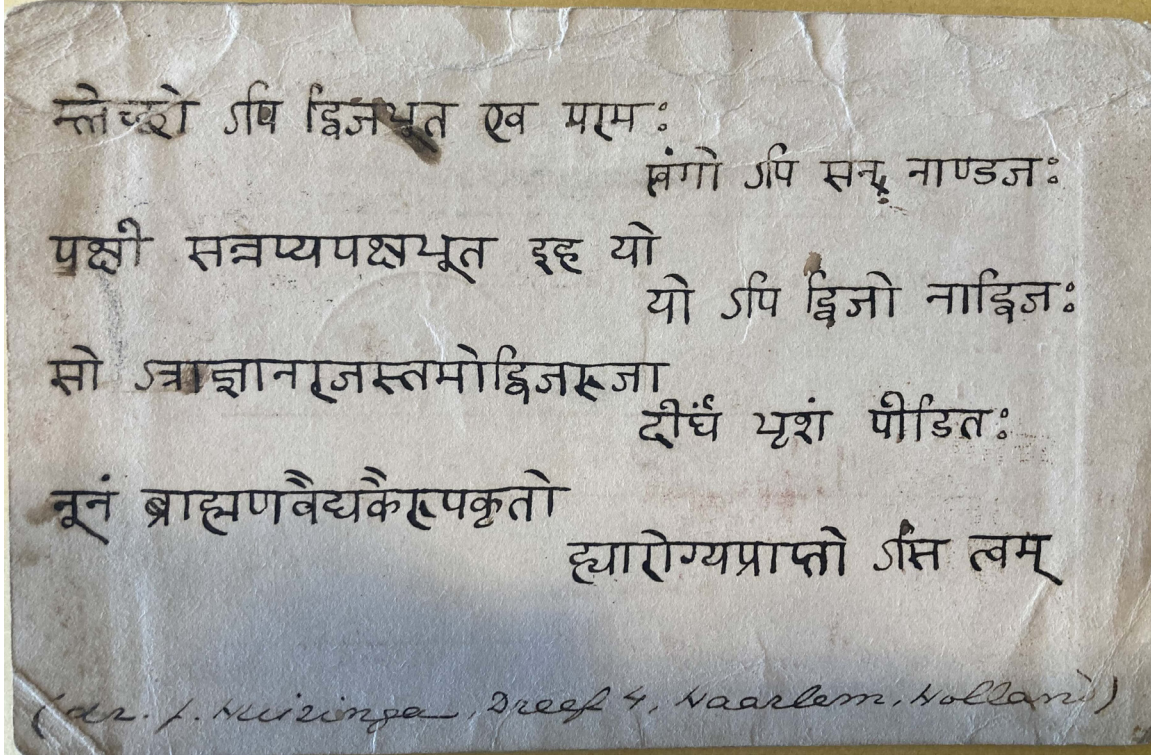 म्लेच्छो ऽपि द्विजभूत एव परमः
खंगो ऽपि सन् नाण्डजः
पक्षी सन्नप्यपक्षभूत इह यो
यो ऽपि द्विजो नाद्विजः
सो ऽत्राज्ञानरजस्तमोद्विजरुजा
दीर्घं भृशं पीडितः
नूनं ब्राह्मणवैद्यकैरुपकृतो
ह्यारोग्यप्राप्तो ऽसि त्वम्
(dr. J. Huizinga, Dreef 4, Haarlem, Holland)